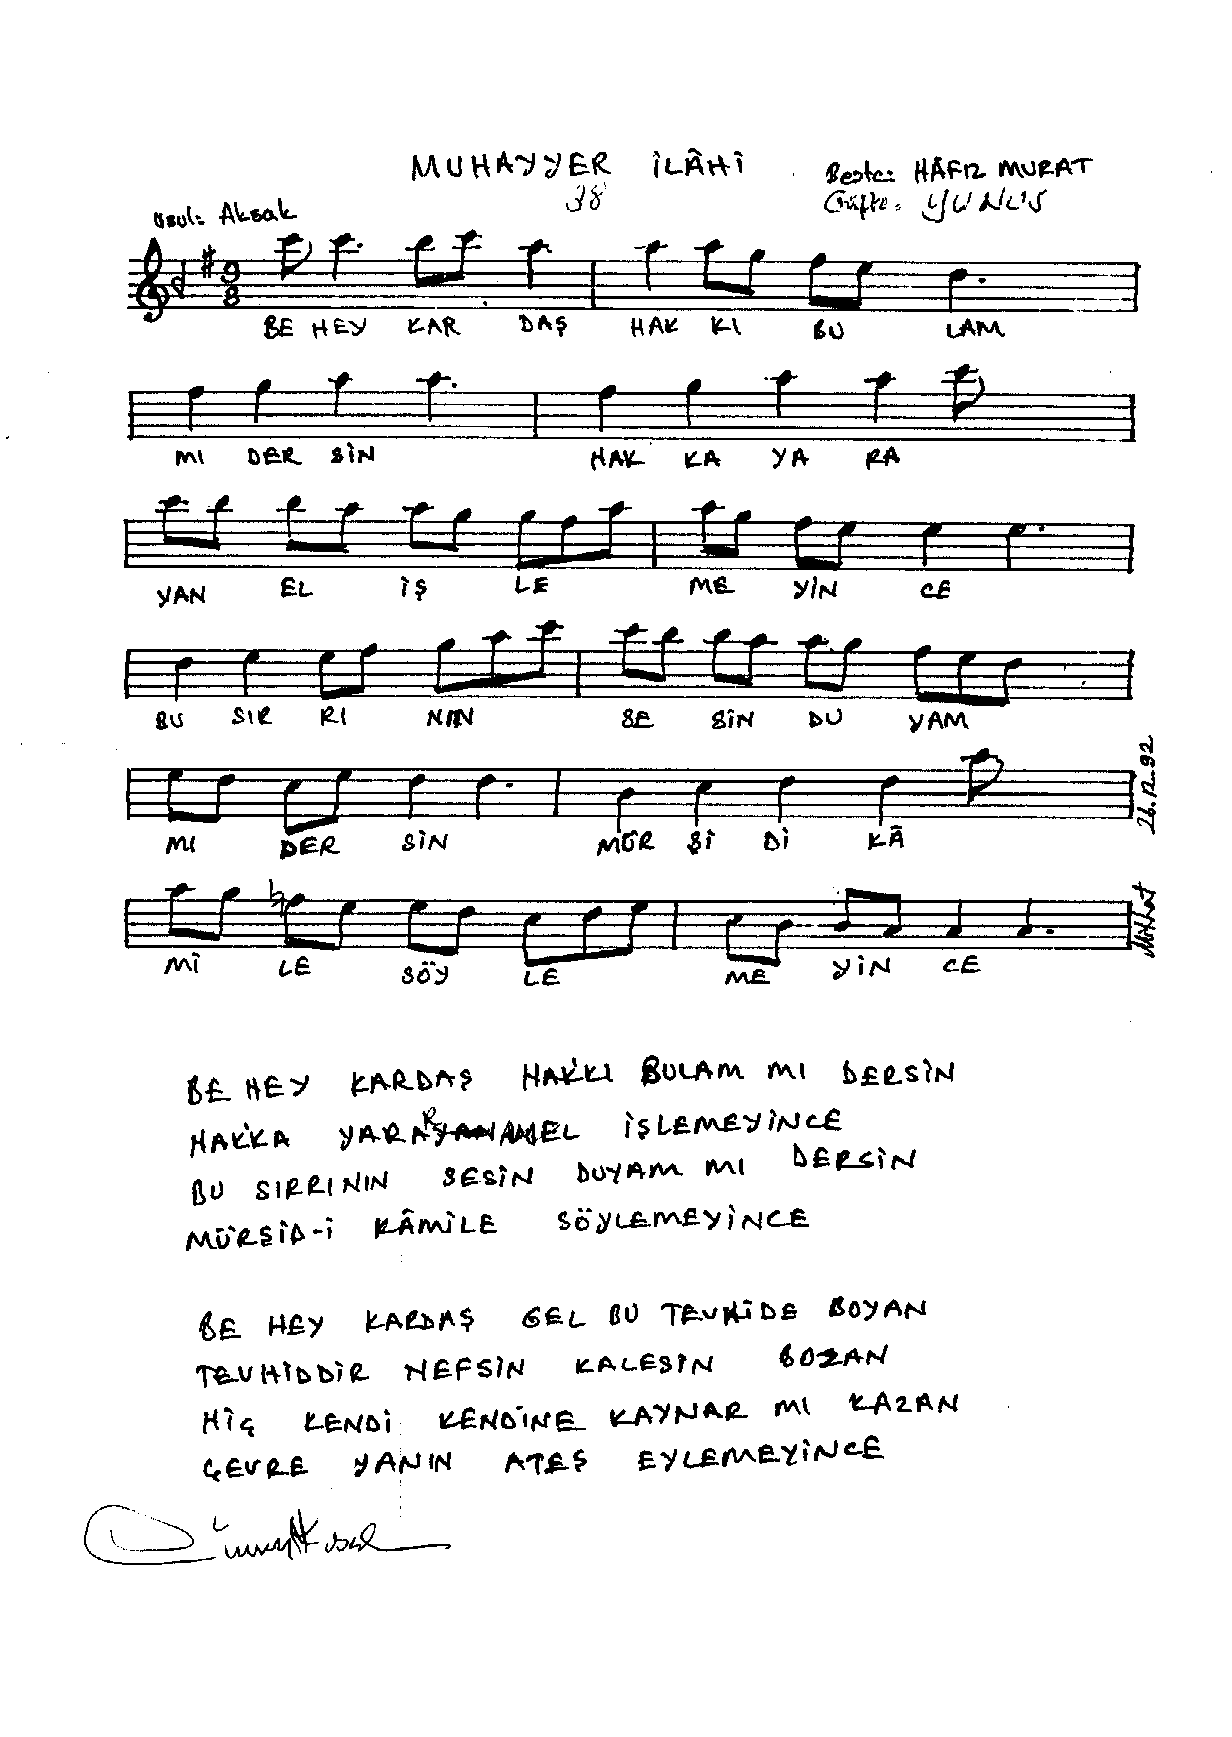 MUHAYYER İLÂHİ
38
Beste: HÂFIZ MURAT
Güfte: YUNUS
Usul: Aksak
9
8
BE HEY KAR DAŞ HAK KI BU LAM
MI DER SİN HAK KA YA RA
YAN EL İŞ LE ME YİN CE
BU SIR RI NIN SE SİN DU YAM
MI DER SİN MÜR Şİ Dİ KÂ
26.12.92
Mİ LE SÖY LE ME YİN CE
Mithat
BE HEY KARDAŞ HAKKI BULAM MI DERSİN
HAKKA YARAR AMEL İŞLEMEYİNCE
BU SIRRININ SESİN DUYAM MI DERSİN
MÜRŞİD-İ KÂMİLE SÖYLEMEYİNCE
BE HEY KARDAŞ GEL BU TEVHİDE BOYAN
TEVHİDDİR NEFSİN KALESİN BOZAN
HİÇ KENDİ KENDİNE KAYNAR MI KAZAN
ÇEVRE YANIN ATEŞ EYLEMEYİNCE